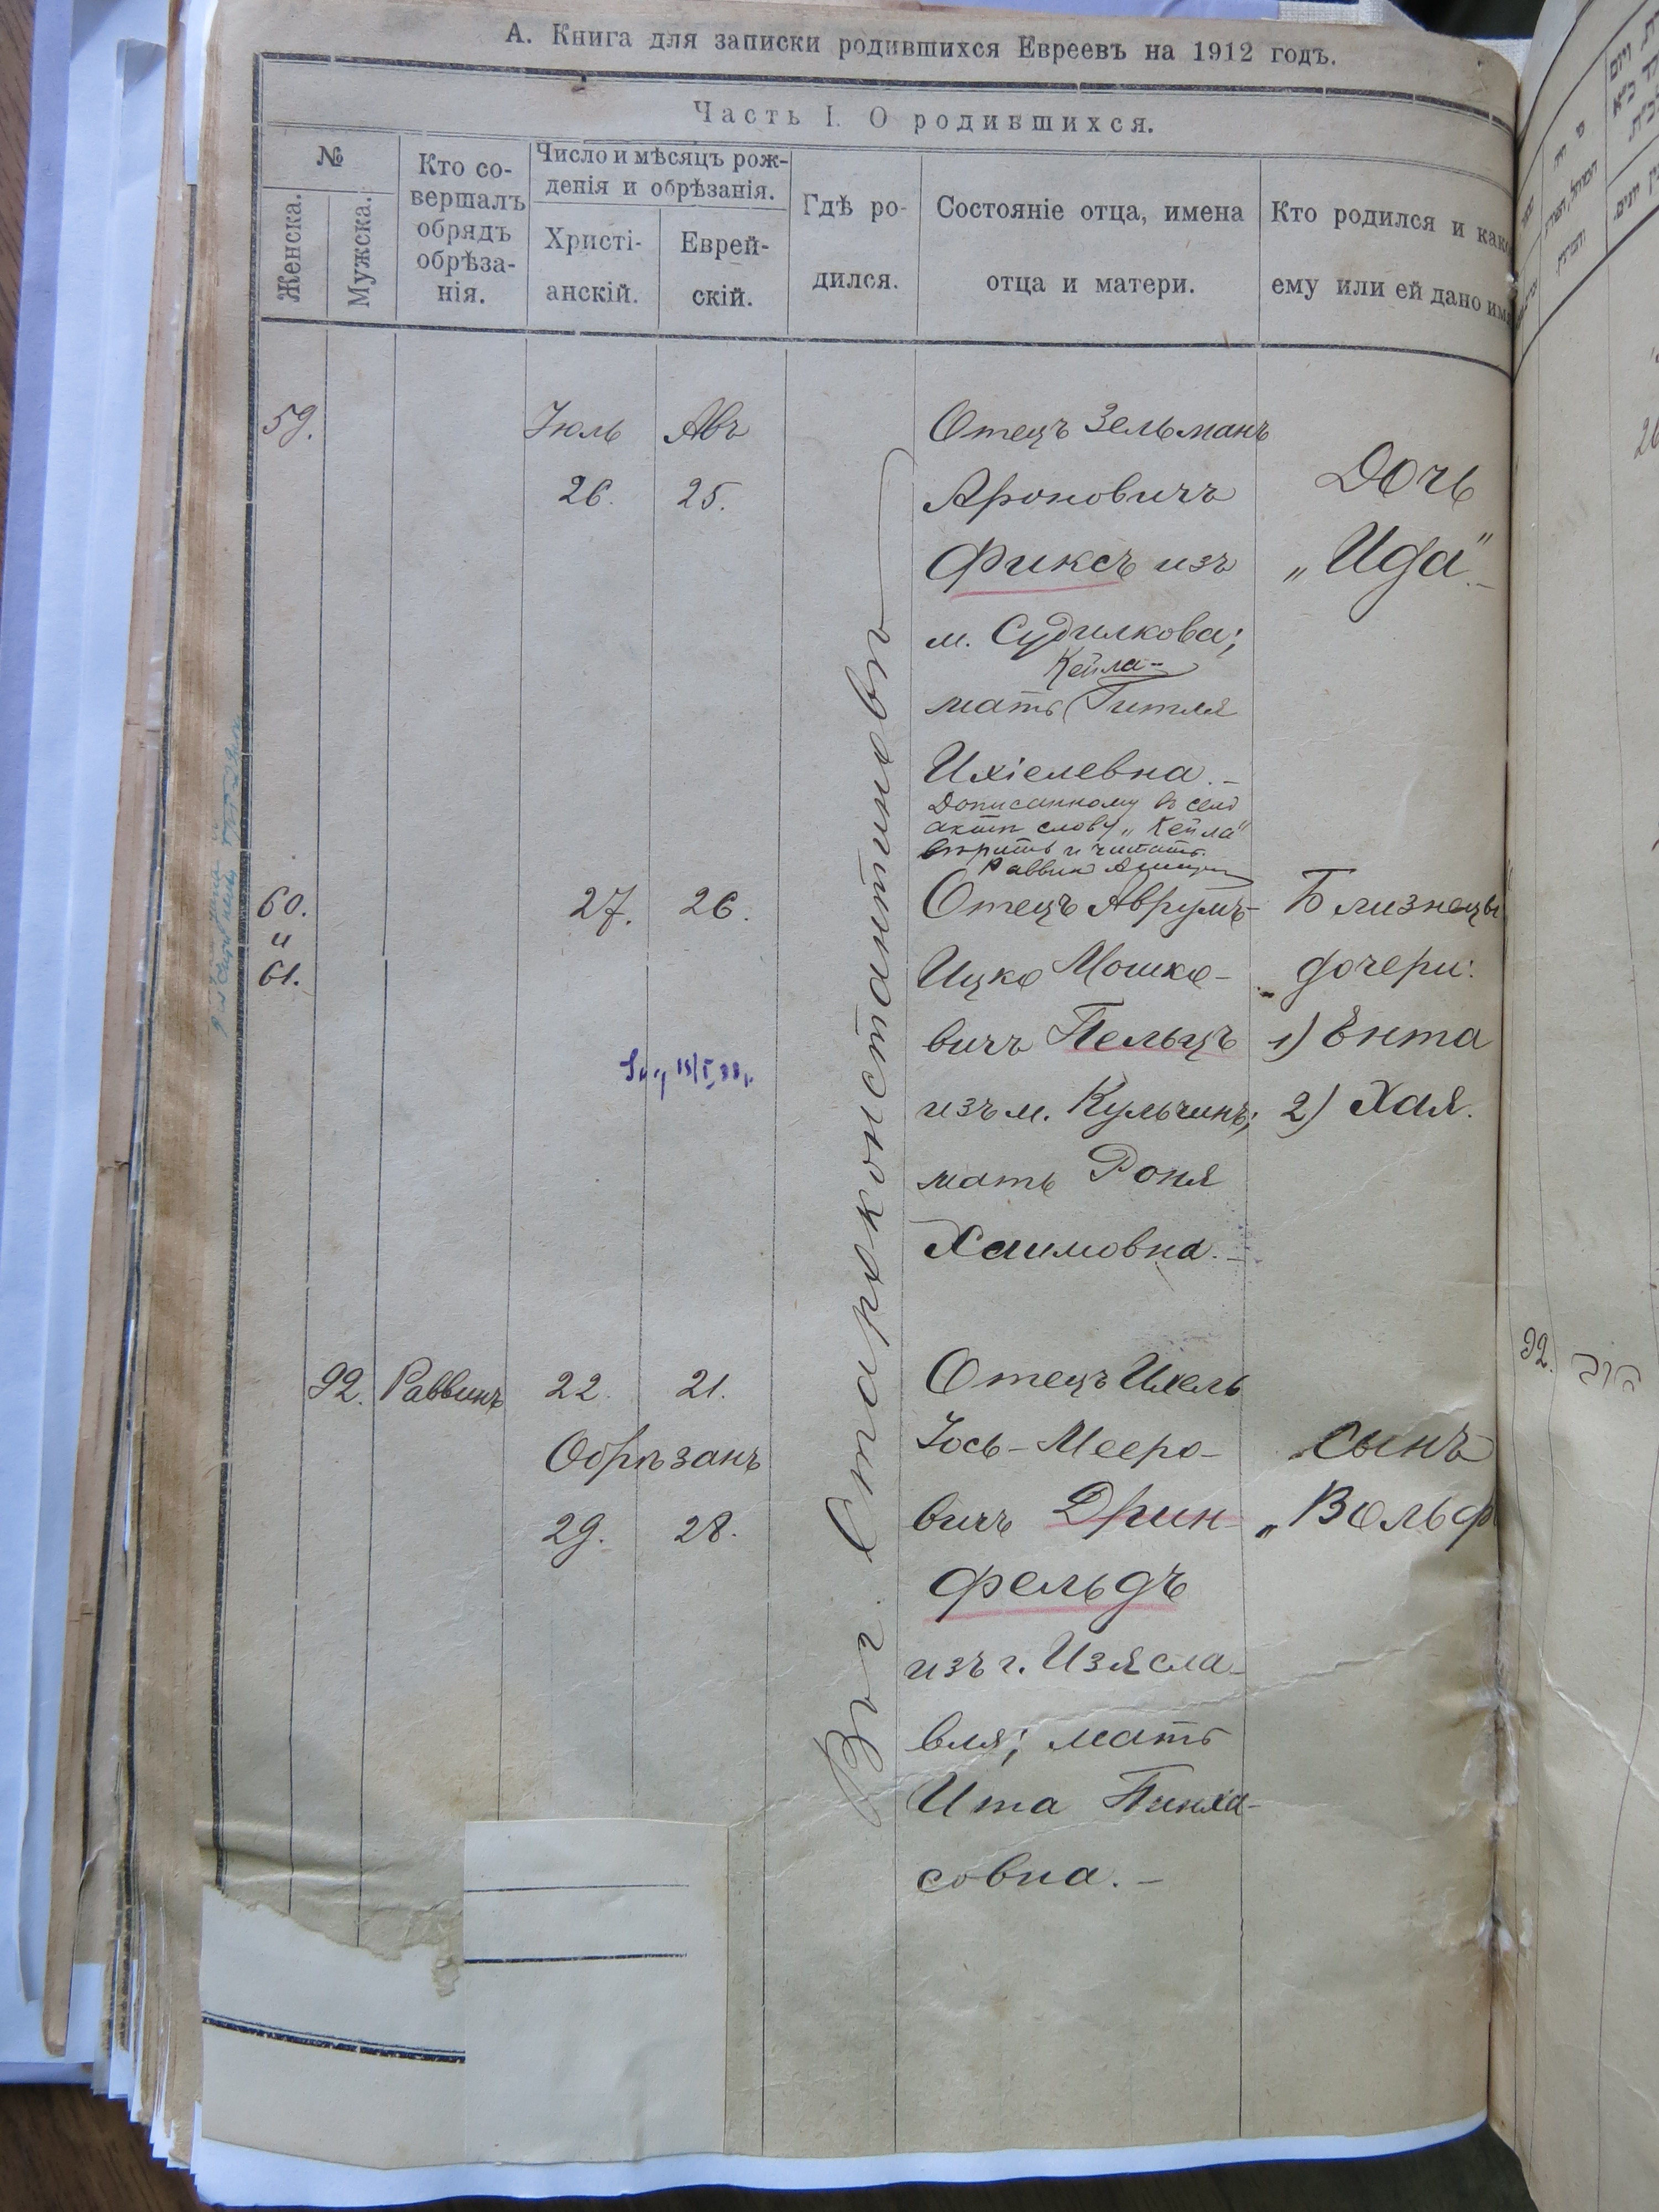 А. Книга для записки родившихся Евреевъ на 1912 годъ.
Часть I. О родившихся.
№
Женска.
Мужска.
Кто со-
вершалъ
обрядъ
обрѣза-
нія.
Число и мѣсяцъ рож-
денія и обрѣзанія.
Христі-
анскій.
Еврей-
скій.
Гдѣ ро-
дился.
Состояніе отца, имена
отца и матери.
Кто родился и како
ему или ей дано имя
Въ г. Староконстантиновѣ
59.
Іюль Авъ
26. 25.
Отецъ Зельманъ
Ароновичъ
Фиксъ изъ
м. Судилкова;
Кейла-
мать Гитля
Ихіелевна.-
Дописанному въ семъ
актѣ слову „Кейла"
вѣрить и читать.
Раввинъ
Дочь
„Ида".-
60.
и
61.
27. 26.
Отецъ Аврумъ-
Ицко Мошко-
вичъ Пельцъ
изъ м. Кульчинъ;
мать Роня
Хаимовна.-
Близнецы
дочери:
1) Ента
2) Хая.
92. Раввинъ 22. 21.
Обрѣзанъ
29. 28.
Отецъ Ихель
Іось-Мееро-
вичъ Грин-
фельдъ
изъ г. Изясла-
вля; мать
Ита Пинха-
совна.-
сынъ
„Вольф
92.